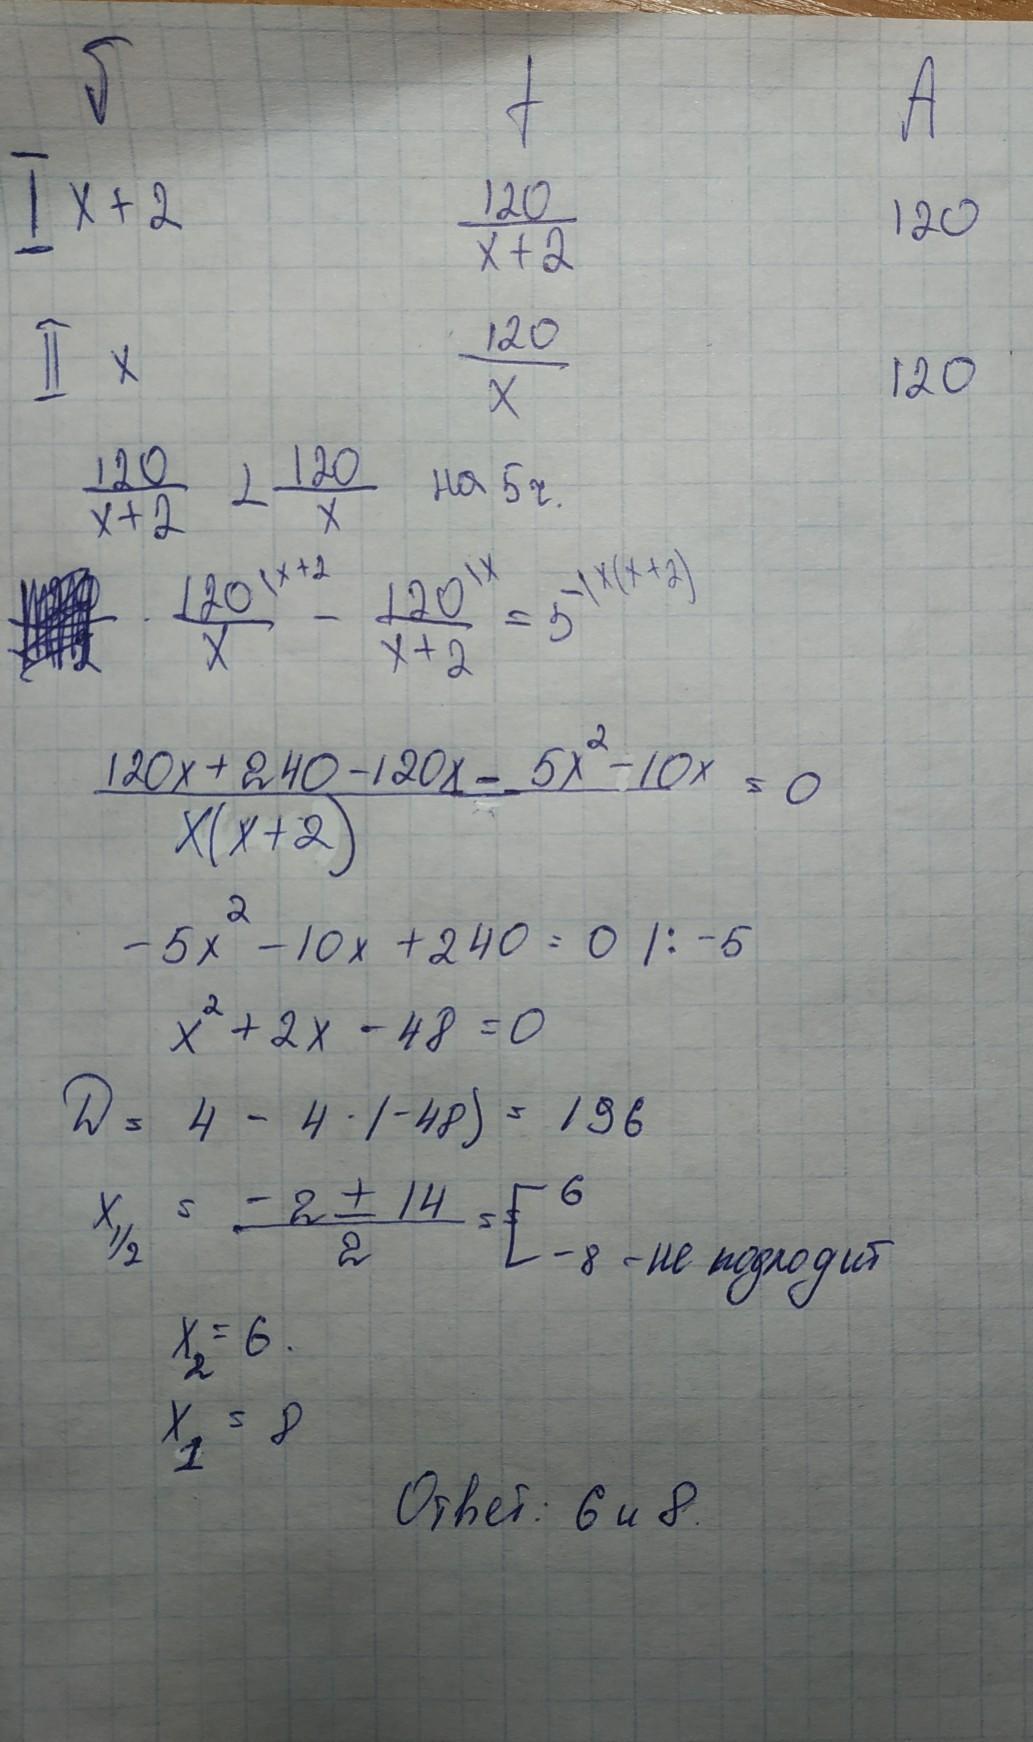 V t A
I x+2 120/(x+2) 120
II x 120/x 120
120/(x+2) < 120/x на 5 ч.
120/x ^(\x+2) - 120/(x+2) ^(\x) = 5 ^(-\x(x+2))
(120x+240-120x-5x²-10x)/(x(x+2)) = 0
-5x²-10x+240=0 |: -5
x²+2x-48=0
D= 4 - 4·(-48) = 196
x₁/₂ = (-2±14)/2 = = [ 6
-8 - не подходит
x₂=6.
x₁=8
Ответ: 6 и 8.